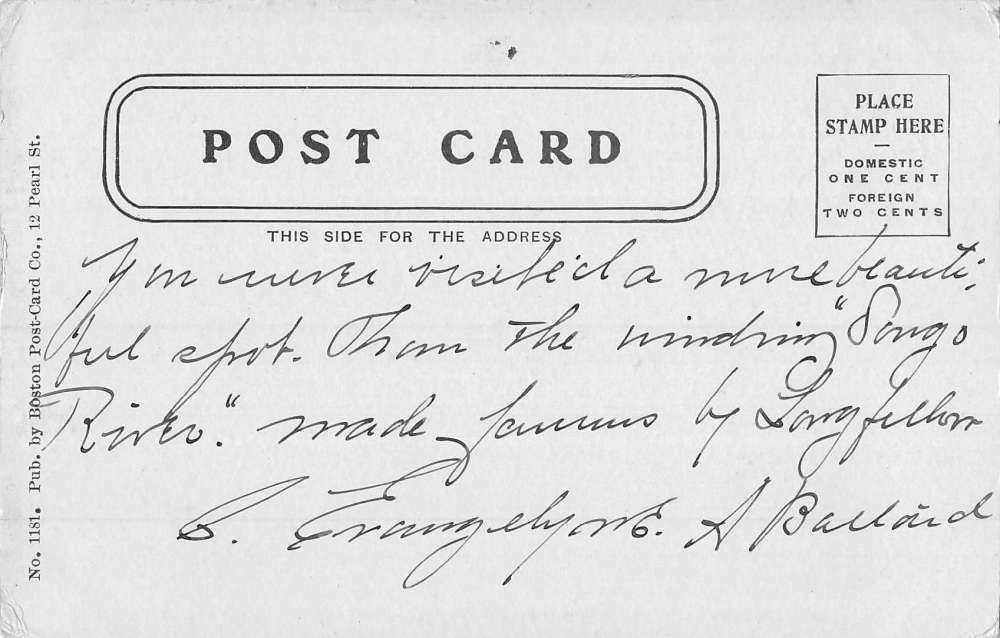 POST CARD
PLACE
STAMP HERE
DOMESTIC
ONE CENT
FOREIGN
TWO CENTS
THIS SIDE FOR THE ADDRESS
No. 1181. Pub. by Boston Post-Card Co., 12 Pearl St.
You never visited a more beauti-
ful spot. Than the winding "Songo
River." made famous by Longfellow
Evangelyne. A Ballard